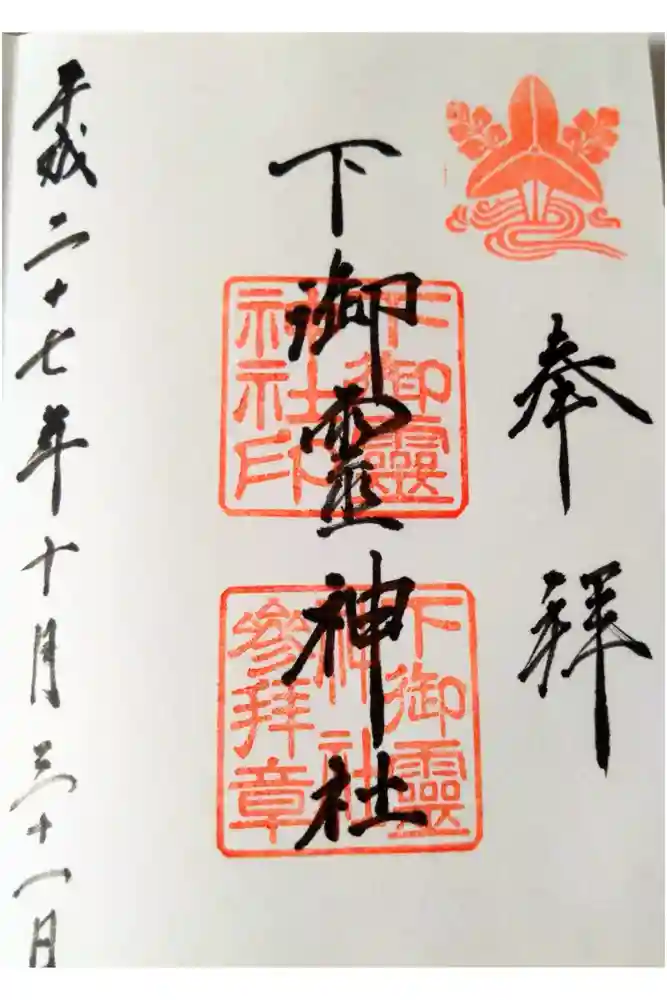 奉拝
下御霊神社
下御靈
神社印
下御靈
神社
參拝章
平成二十七年十月三十一日